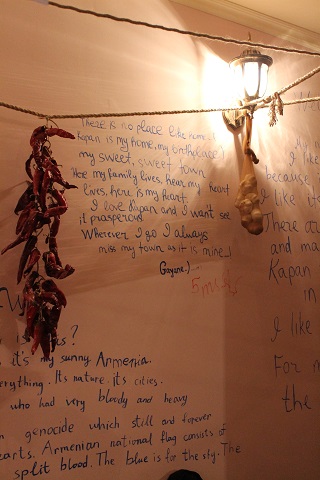 There is no place like home
Kapan is my home, my birthplace!
my sweet, sweet town
Here my family lives, near my heart
lives, here is my heart.
I love Kapan and I want see
it prosperous
Wherever I go I always
miss my town as it is mine!
Gayane :)
5
W
is ?
it's my sunny Armenia.
everything. Its nature, its cities.
who had very bloody and heavy
genocide which still and forever
hearts. Armenian national flag consists of
split blood. The blue is for the sky. The
I like
because
I like
There are
and ma
Kapan
in
I like
For m
the